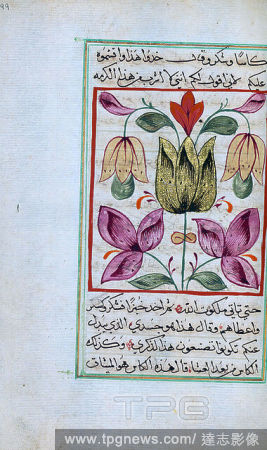 99
كاسا وشكر وقال خذوا هذا واقتسموه
عليكم فاني اقول لكم انني لا اشرب من هذا الكرمه
حتى تاتي ملكوت الله ثم اخذ خبزا فشكر وكسر
واعطاهم وقال هذا هو جسدي الذي يبذل
عنكم تكونوا تصنعون هذا لذكري وكذلك
الكاس من بعد العشاء قال هذه الكاس هو الميثاق
TPG
www.tpgnews.com/達志影像